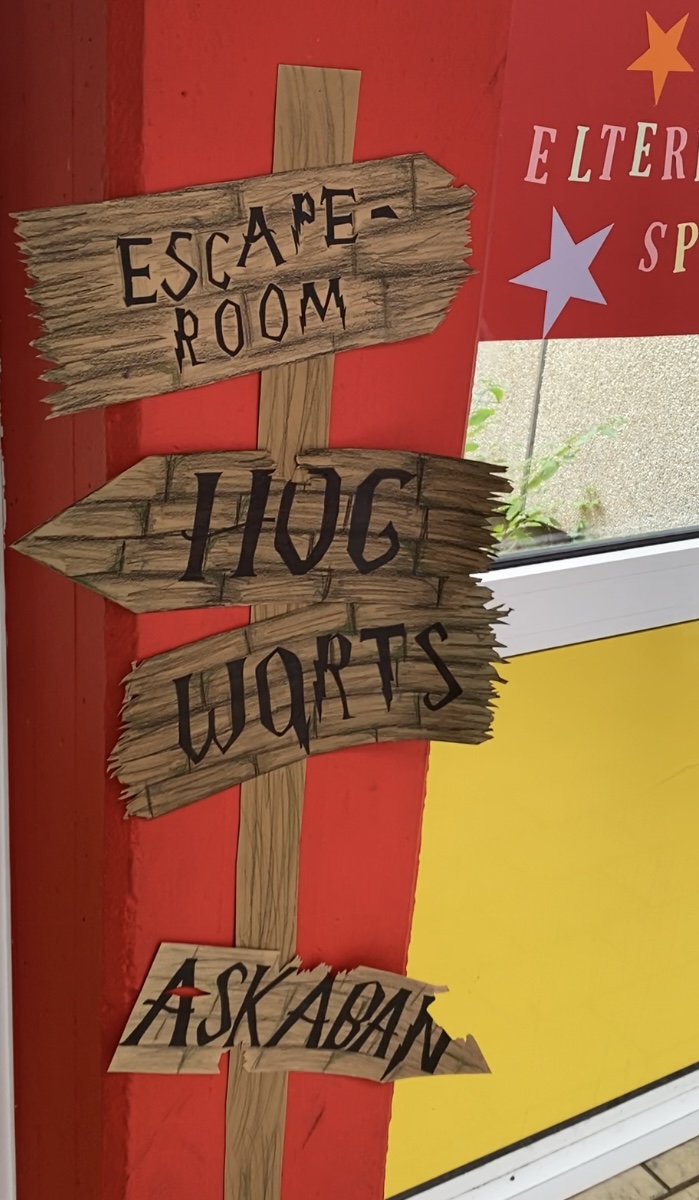 ESCAPE-
ROOM
HOG
WORTS
ASKABAN
ELTER
SP